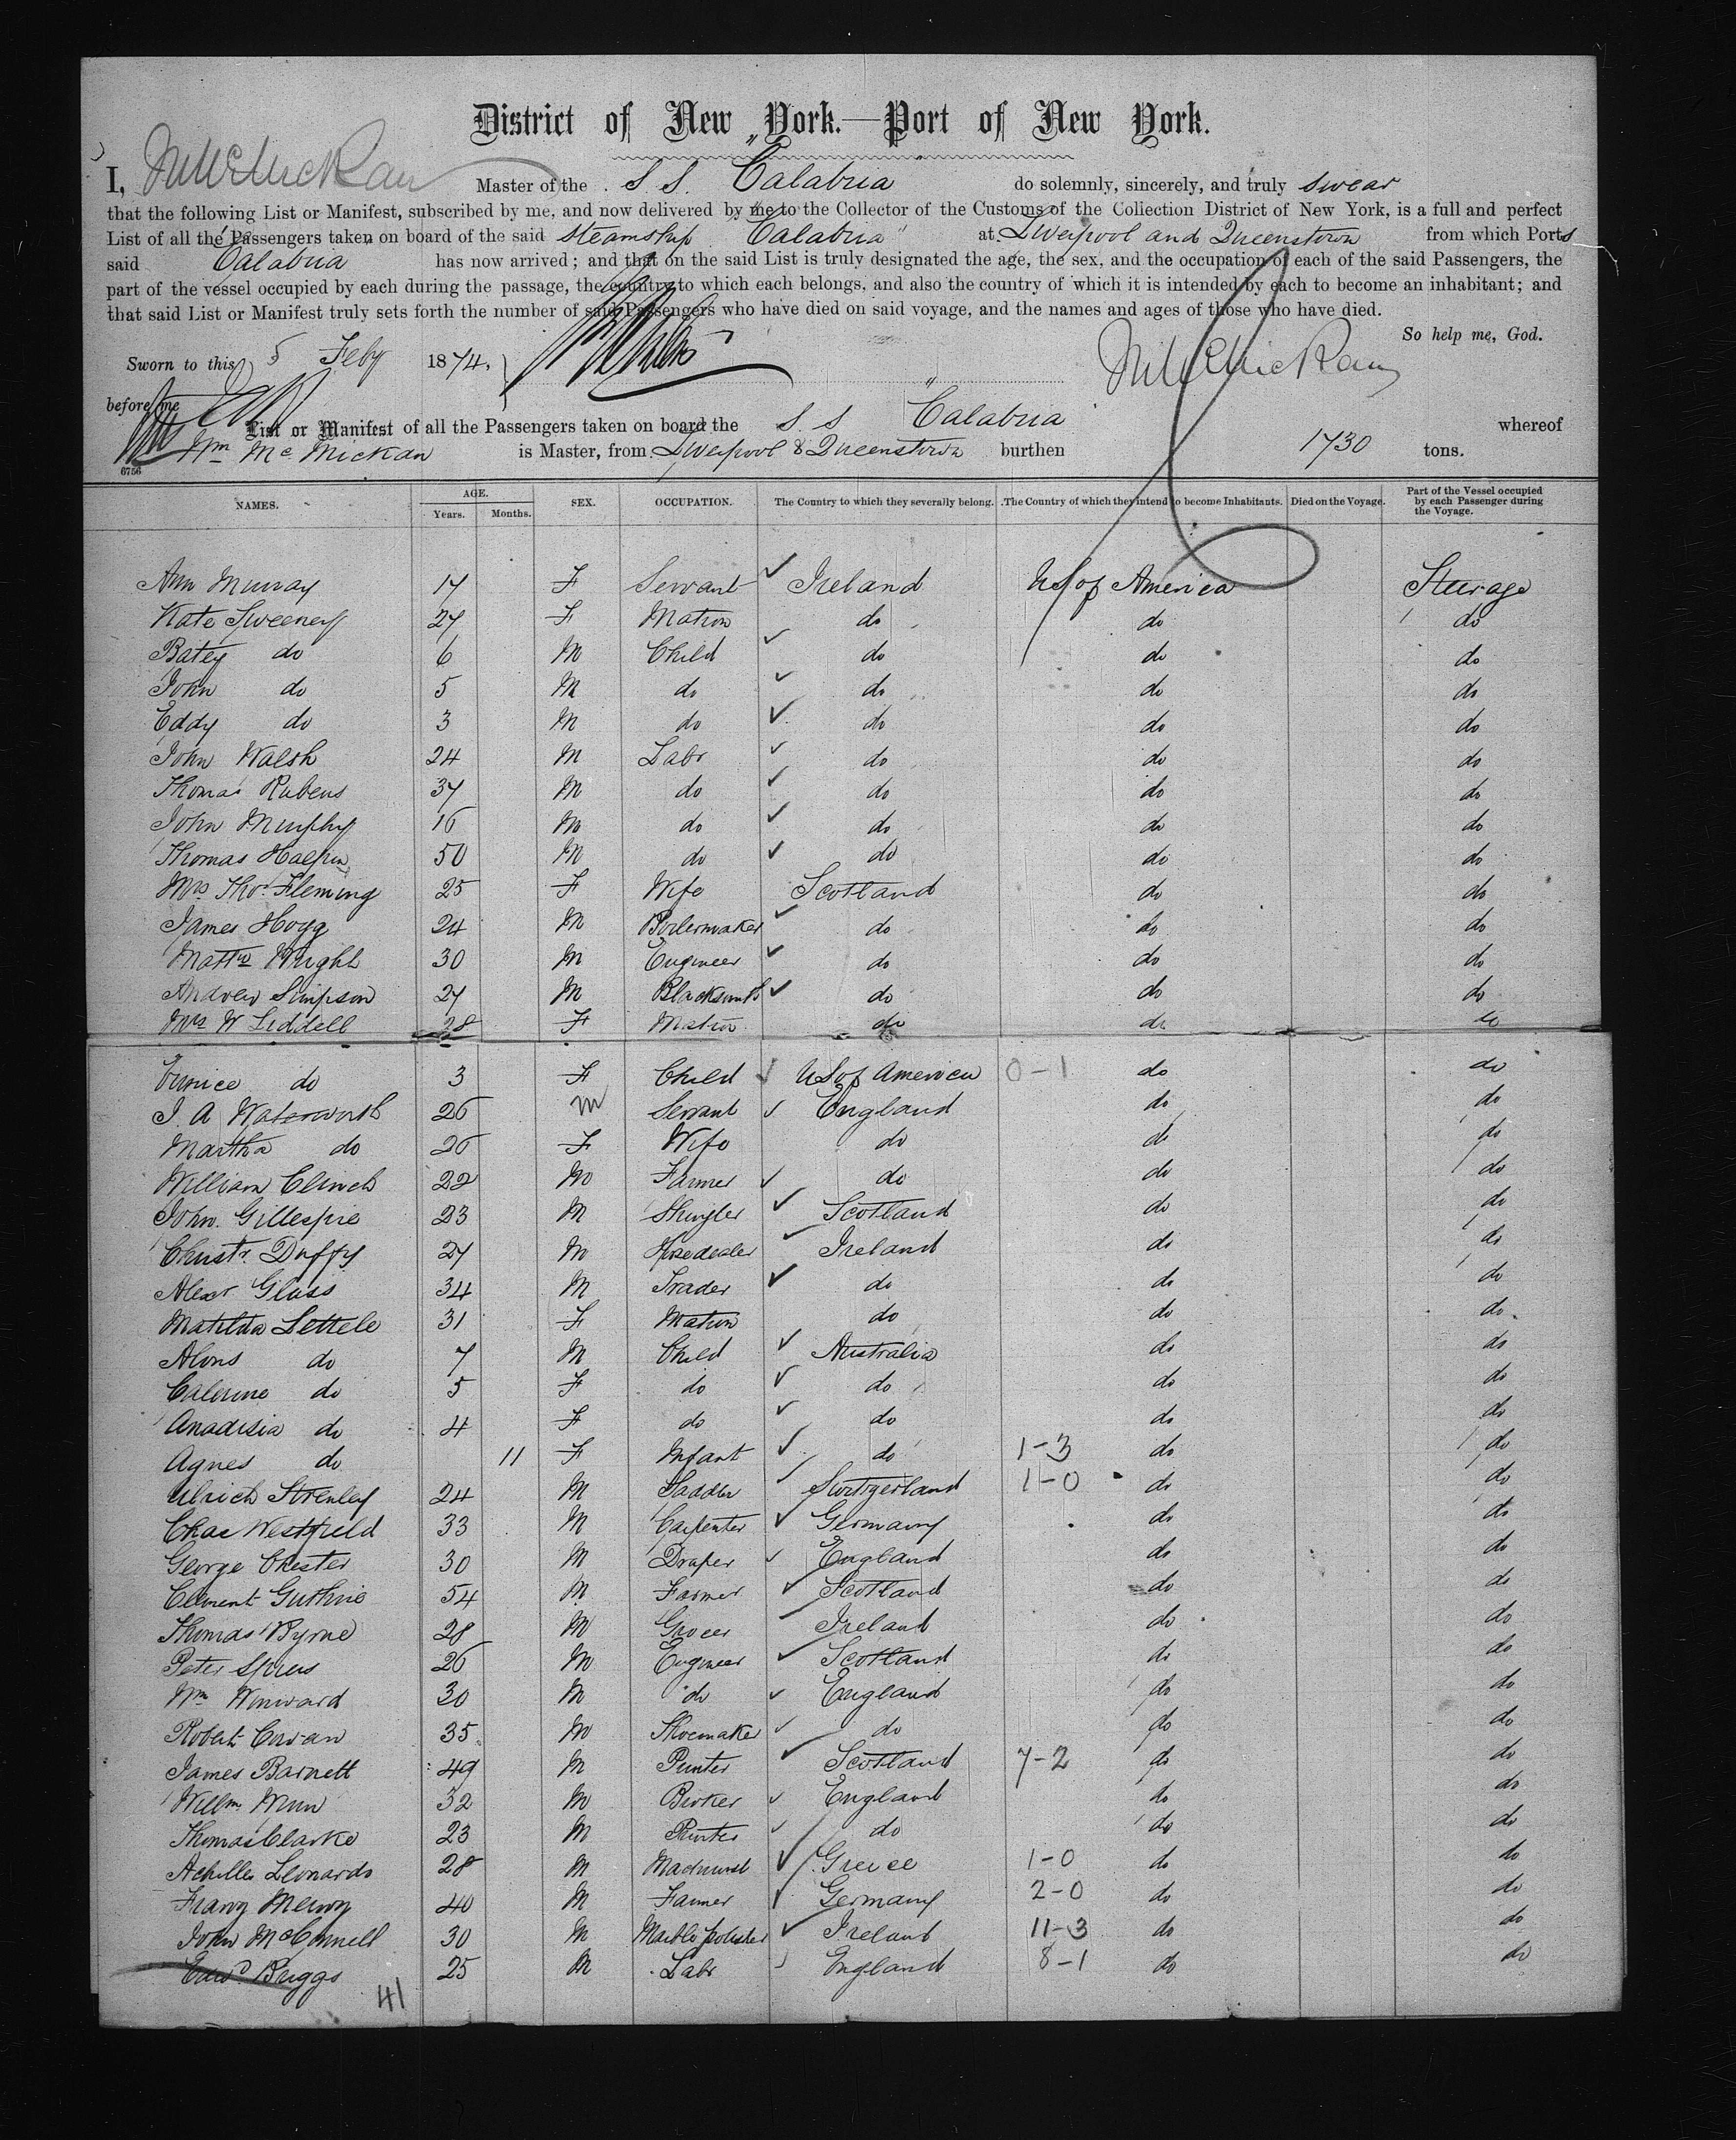 District of New York.—Port of New York.
I, Master of the S. S. "Calabria" do solemnly, sincerely, and truly swear
that the following List or Manifest, subscribed by me, and now delivered by me to the Collector of the Customs of the Collection District of New York, is a full and perfect
List of all the Passengers taken on board of the said steamship "Calabria" at Liverpool and Queenstown from which Ports
said "Calabria" has now arrived; and that on the said List is truly designated the age, the sex, and the occupation of each of the said Passengers, the
part of the vessel occupied by each during the passage, the country to which each belongs, and also the country of which it is intended by each to become an inhabitant; and
that said List or Manifest truly sets forth the number of said Passengers who have died on said voyage, and the names and ages of those who have died.
So help me, God.
Sworn to this 5 Feby 1874.
before me
List or Manifest of all the Passengers taken on board the S. S "Calabria whereof
Wm McMickan is Master, from Liverpool & Queenstown burthen 1730 tons.
6756
NAMES. AGE. Years. Months. SEX. OCCUPATION. The Country to which they severally belong. The Country of which they intend to become Inhabitants. Died on the Voyage. Part of the Vessel occupied by each Passenger during the Voyage.
Ann Murray 17 F Servant Ireland US of America Steerage
Kate Sweeney 27 F Matron do do do
Batey do 6 M Child do do do
John do 5 M do do do do
Eddy do 3 M do do do do
John Walsh 24 M Labr do do do
Thomas Rubens 37 M do do do do
John Murphy 16 M do do do do
Thomas Halpin 50 M do do do do
Mrs Thos Fleming 25 F Wife Scotland do do
James Hogg 24 M Boilermaker do do do
Mattw Wright 30 M Engineer do do do
Andrew Simpson 27 M Blacksmith do do do
Mrs W Liddell 28 F Matron do do do
Eunice do 3 F Child US of America 0-1 do do
J. A Waterworth 26 M Servant England do do
Martha do 26 F Wife do do do
William Clinch 22 M Farmer do do do
John Gillespie 23 M Shingler Scotland do do
Christr Duffy 27 M Horsedealer Ireland do do
Alexr Glass 34 M Trader do do do
Matilda Lettele 31 F Matron do do do
Alons do 7 M Child Australia do do
Caterine do 5 F do do do do
Anadisia do 4 F do do do do
Agnes do 11 F Infant do 1-3 do do
Ulrich Strenley 24 M Saddler Switzerland 1-0 do do
Chas Westfield 33 M Carpenter Germany do do
George Chester 30 M Draper England do do
Clement Guthrie 54 M Farmer Scotland do do
Thomas Byrne 28 M Grocer Ireland do do
Peter Spiers 26 M Engineer Scotland do do
Wm Winward 30 M do England do do
Robert Cowan 35 M Shoemaker do do do
James Barnett 49 M Printer Scotland 7-2 do do
Willm Munn 32 M Broker England do do
Thomas Clarke 23 M Printer do do do
Achilles Leonardo 28 M Machinist Greece 1-0 do do
Franz Merwy 40 M Farmer Germany 2-0 do do
John McConnell 30 M Marble polisher Ireland 11-3 do do
Edwd Briggs 25 M Labr England 8-1 do do
41